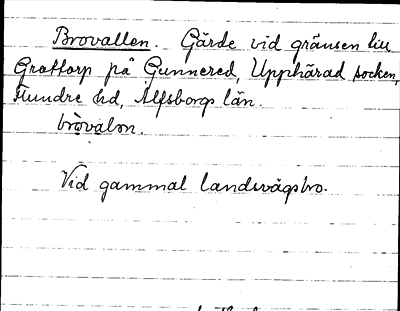 Brovallen. Gärde vid gränsen till
Grattorp på Gunnered, Upphärad socken,
Flundre hd, Älfsborgs län.
bròvalən.
Vid gammal landsvägsbro.